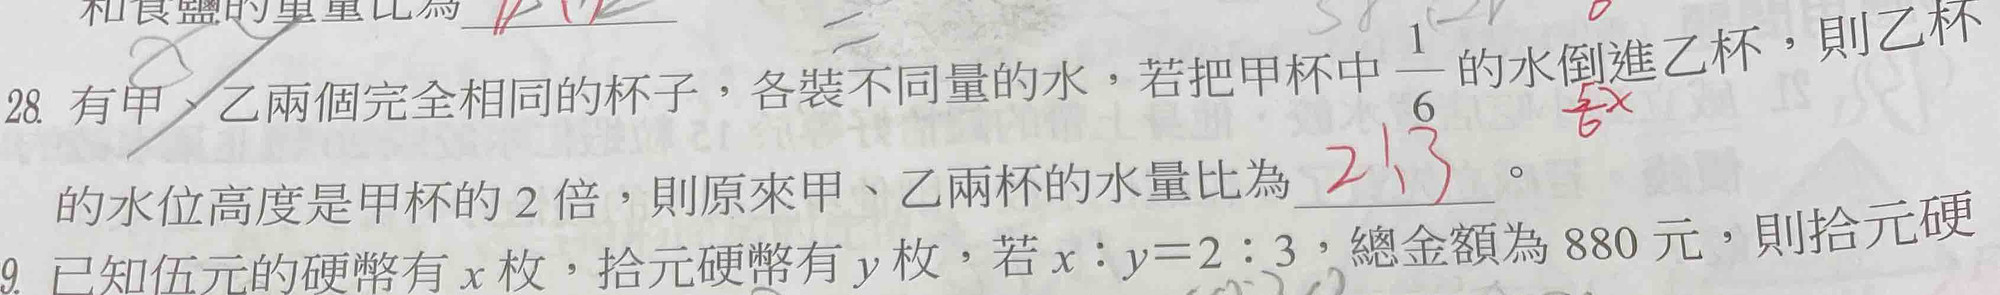 和食鹽的重量比為
28. 有甲、乙兩個完全相同的杯子，各裝不同量的水，若把甲杯中 1/6 的水倒進乙杯，則乙杯
5/6 x
的水位高度是甲杯的 2 倍，則原來甲、乙兩杯的水量比為 2:3 。
9. 已知伍元的硬幣有 x 枚，拾元硬幣有 y 枚，若 x：y＝2：3，總金額為 880 元，則拾元硬